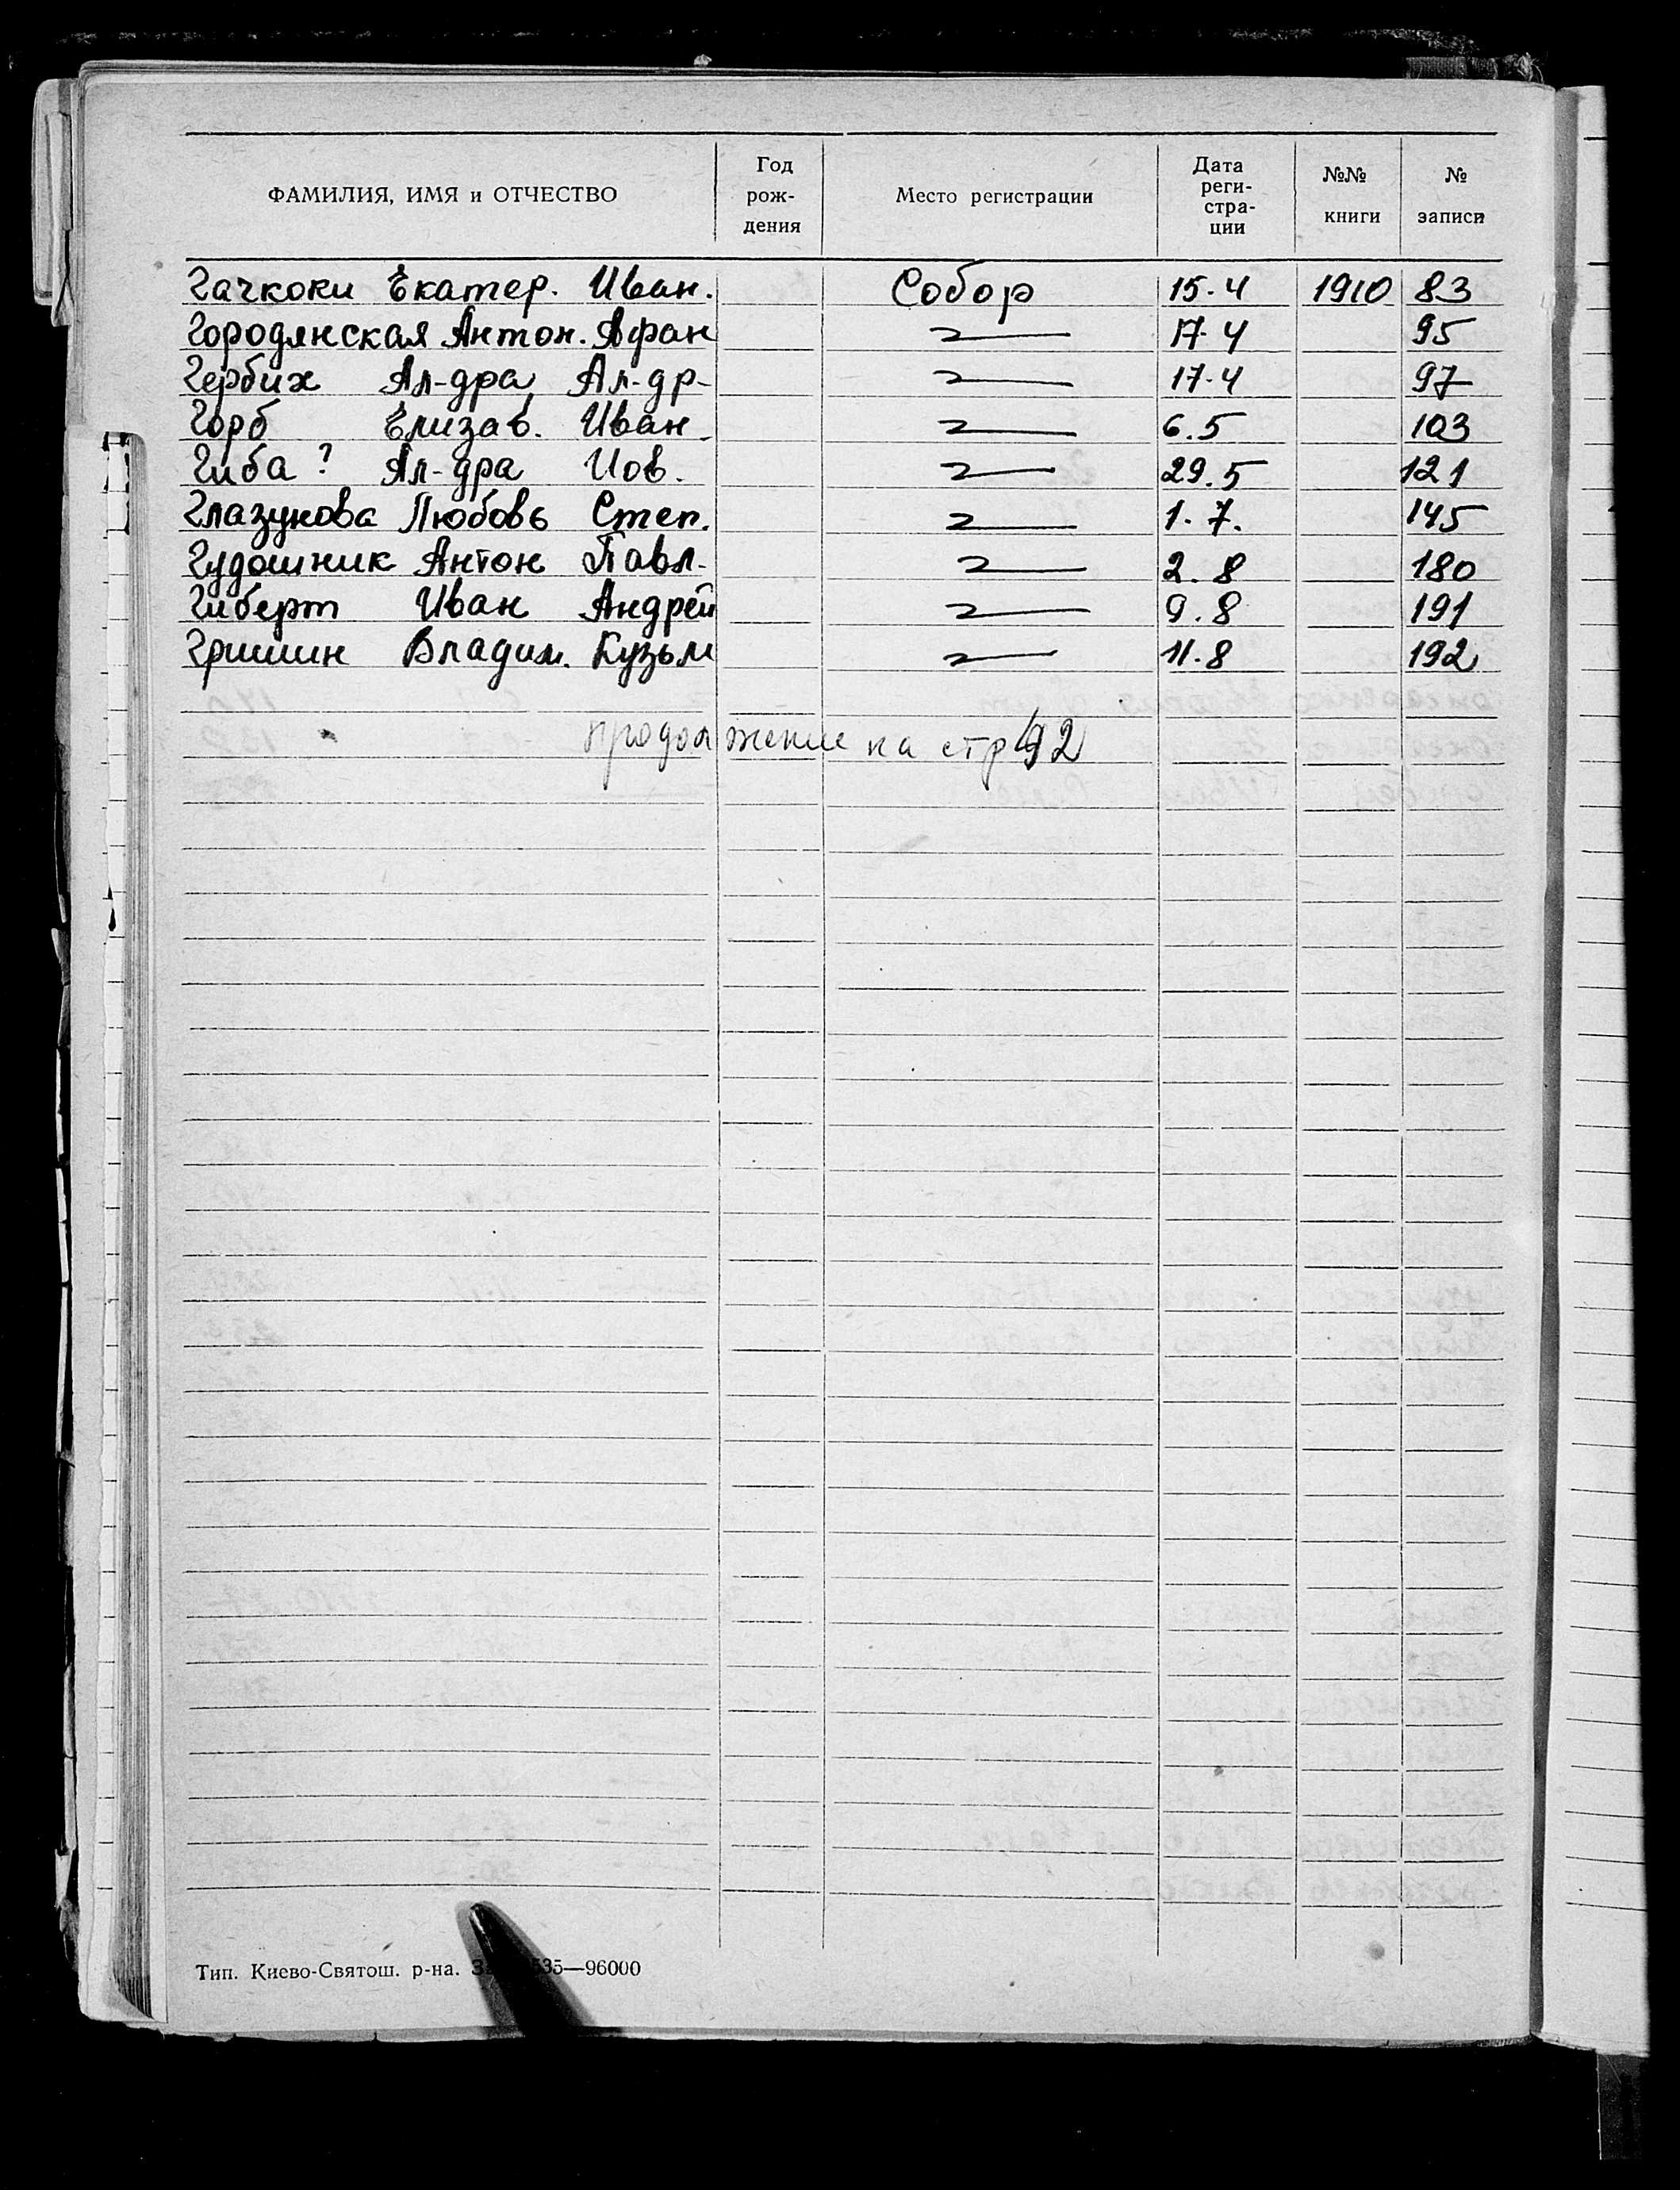 ФАМИЛИЯ, ИМЯ и ОТЧЕСТВО Год рож-дения Место регистрации Дата реги-стра-ции №№ книги № записи
Гачкоки Екатер. Иван. Собор 15.4 1910 83
Городянская Антон. Афан 17.4 95
Гербих Ал-дра Ал-др- 17.4 97
Горб Елизав. Иван. 6.5 103
Гиба ? Ал-дра Иов. 29.5 121
Глазунова Любовь Степ. 1.7. 145
Гудошник Антон Павл. 2.8 180
Гиберт Иван Андрей 9.8 191
Гришин Владим. Кузьм 11.8 192
продолжение на стр 92
Тип. Киево-Святош. р-на. 535—96000